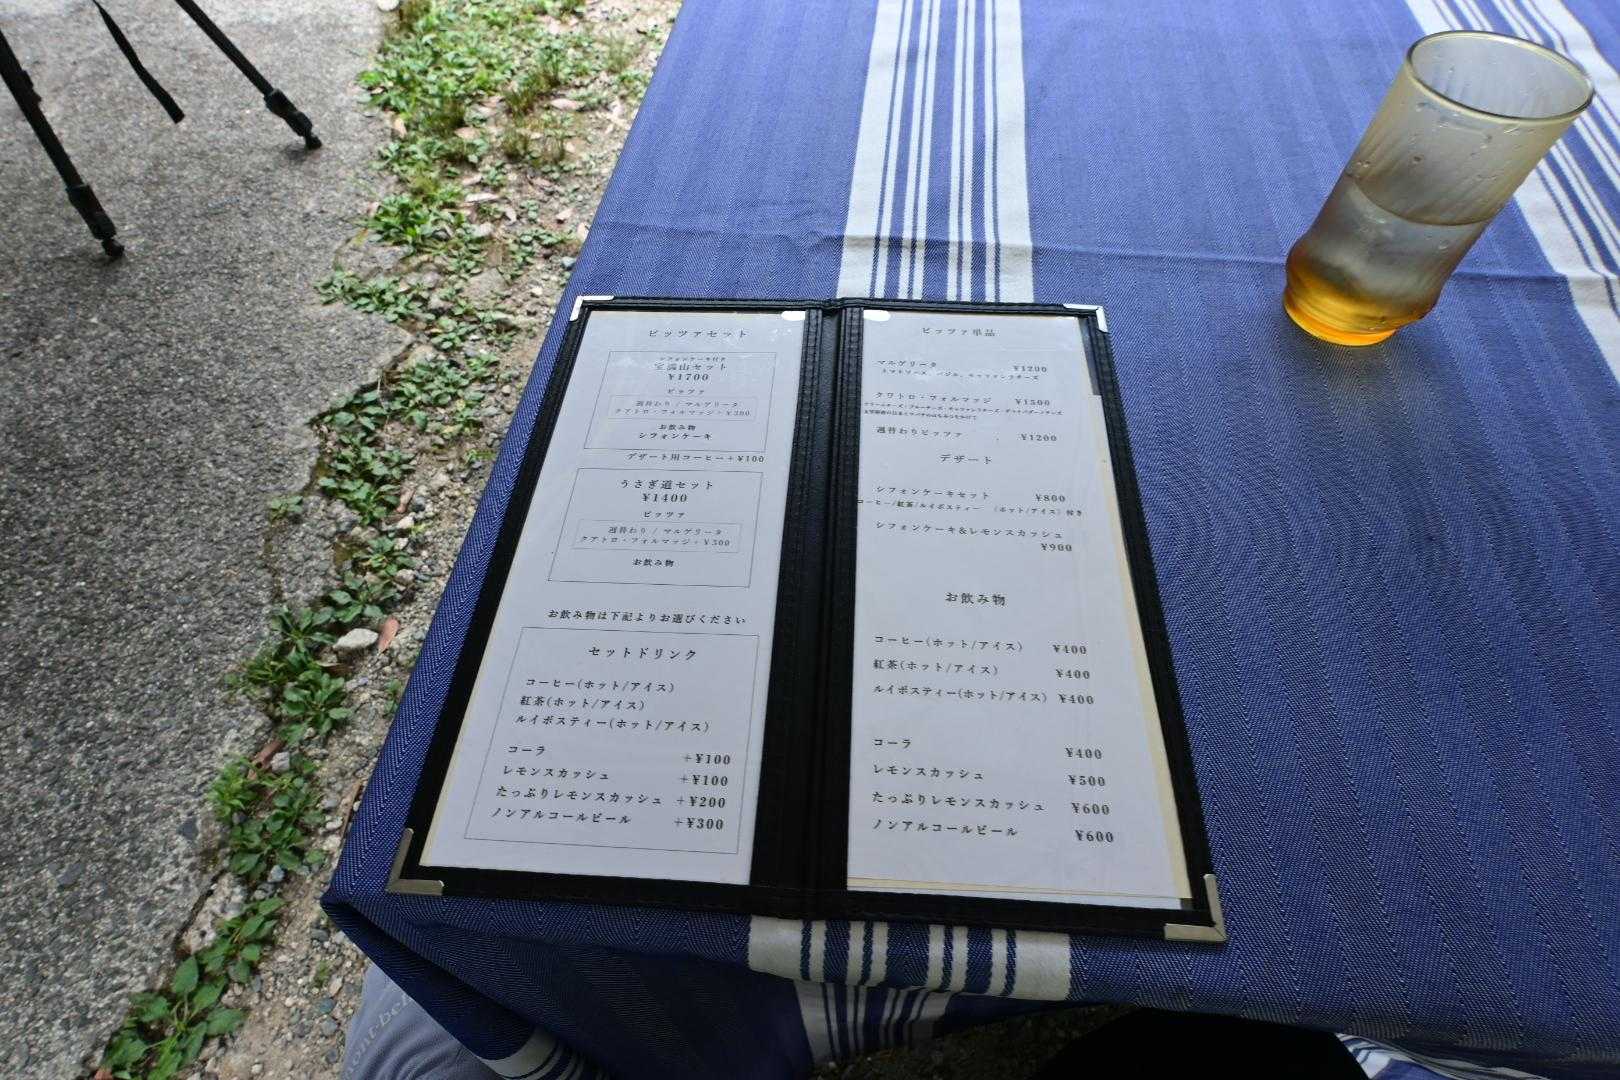 ピッツァセット
シフォンケーキ付き
宝満山セット
¥1700
ピッツァ
週替わり / マルゲリータ
クアトロ・フォルマッジ+¥300
お飲み物
シフォンケーキ
デザート用コーヒー+¥100
うさぎ道セット
¥1400
ピッツァ
週替わり / マルゲリータ
クアトロ・フォルマッジ+¥300
お飲み物
お飲み物は下記よりお選びください
セットドリンク
コーヒー(ホット/アイス)
紅茶(ホット/アイス)
ルイボスティー(ホット/アイス)
コーラ +¥100
レモンスカッシュ +¥100
たっぷりレモンスカッシュ +¥200
ノンアルコールビール +¥300
ピッツァ単品
マルゲリータ ¥1200
トマトソース、バジル、モッツァレラチーズ
クワトロ・フォルマッジ ¥1500
週替わりピッツァ ¥1200
デザート
シフォンケーキセット ¥800
コーヒー/紅茶/ルイボスティー (ホット/アイス)付き
シフォンケーキ&レモンスカッシュ
¥900
お飲み物
コーヒー(ホット/アイス) ¥400
紅茶(ホット/アイス) ¥400
ルイボスティー(ホット/アイス) ¥400
コーラ ¥400
レモンスカッシュ ¥500
たっぷりレモンスカッシュ ¥600
ノンアルコールビール ¥600